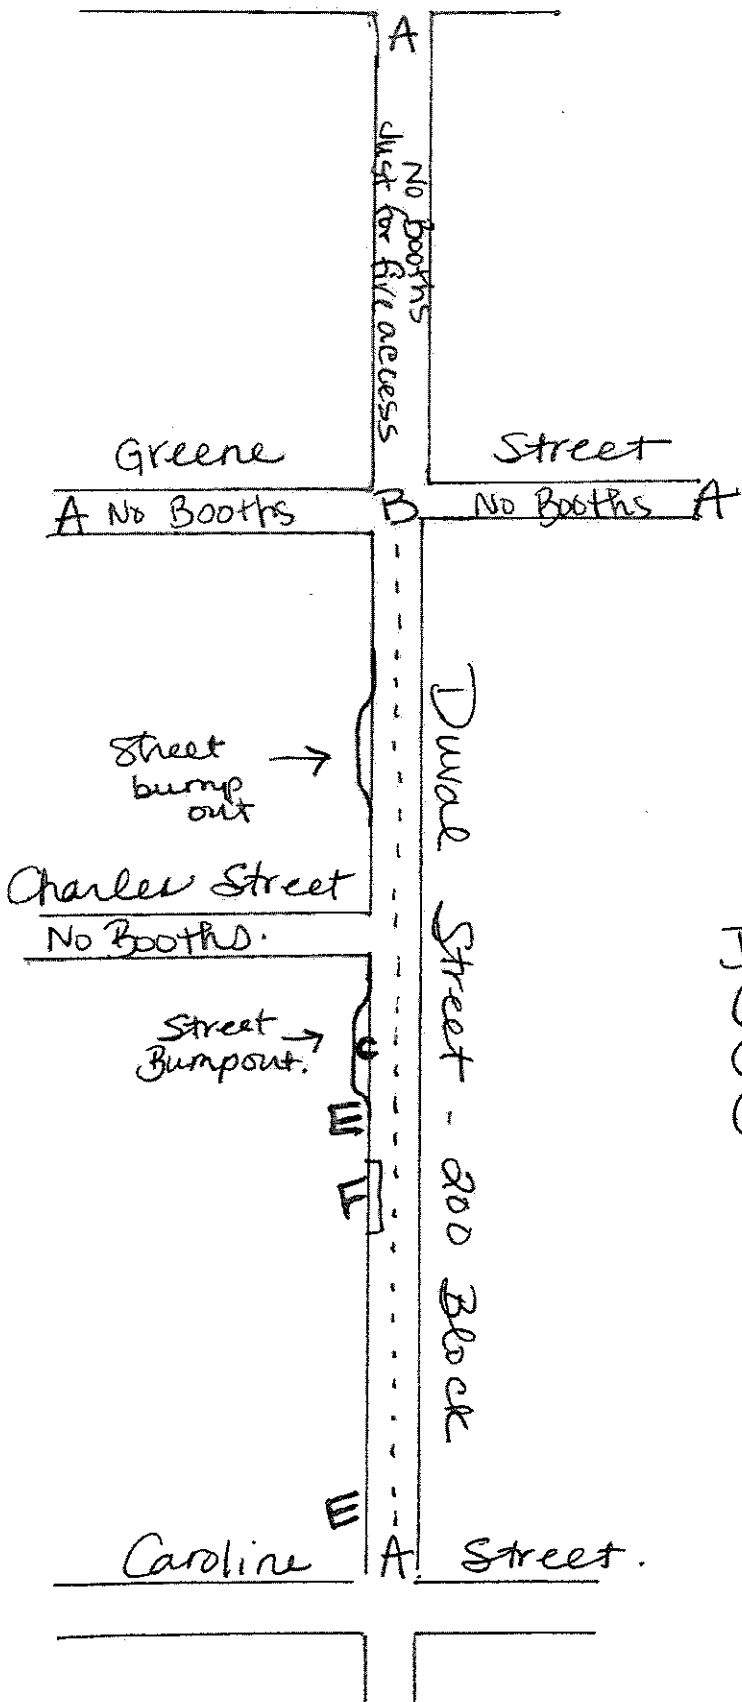 A
No Booths
Just for fire access
Greene Street
A No Booths B No Booths A
Street
bump
out
Duval Street - 200 Block
Charles Street
No Booths.
Street
Bumpout.
C
E
E
Caroline A. Street.